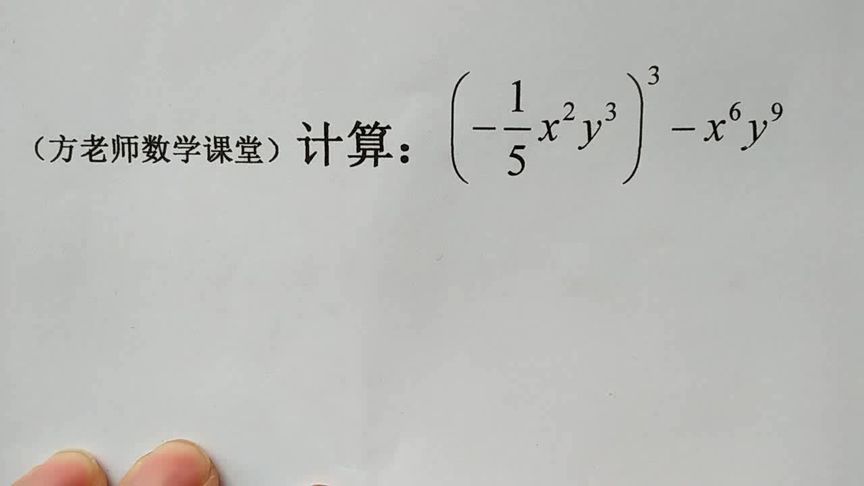 （方老师数学课堂）计算：$\left(-\frac{1}{5}x^2y^3\right)^3-x^6y^9$